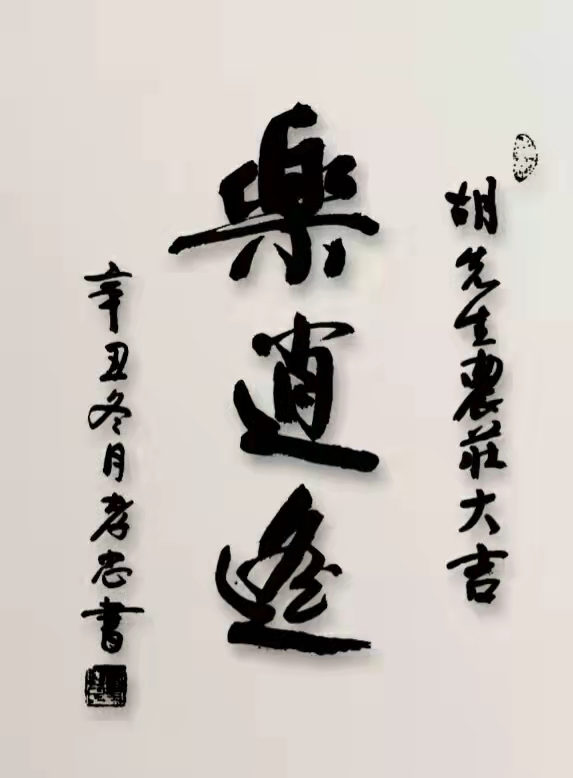 胡先生農莊大吉
樂逍遙
辛丑冬月孝忠書